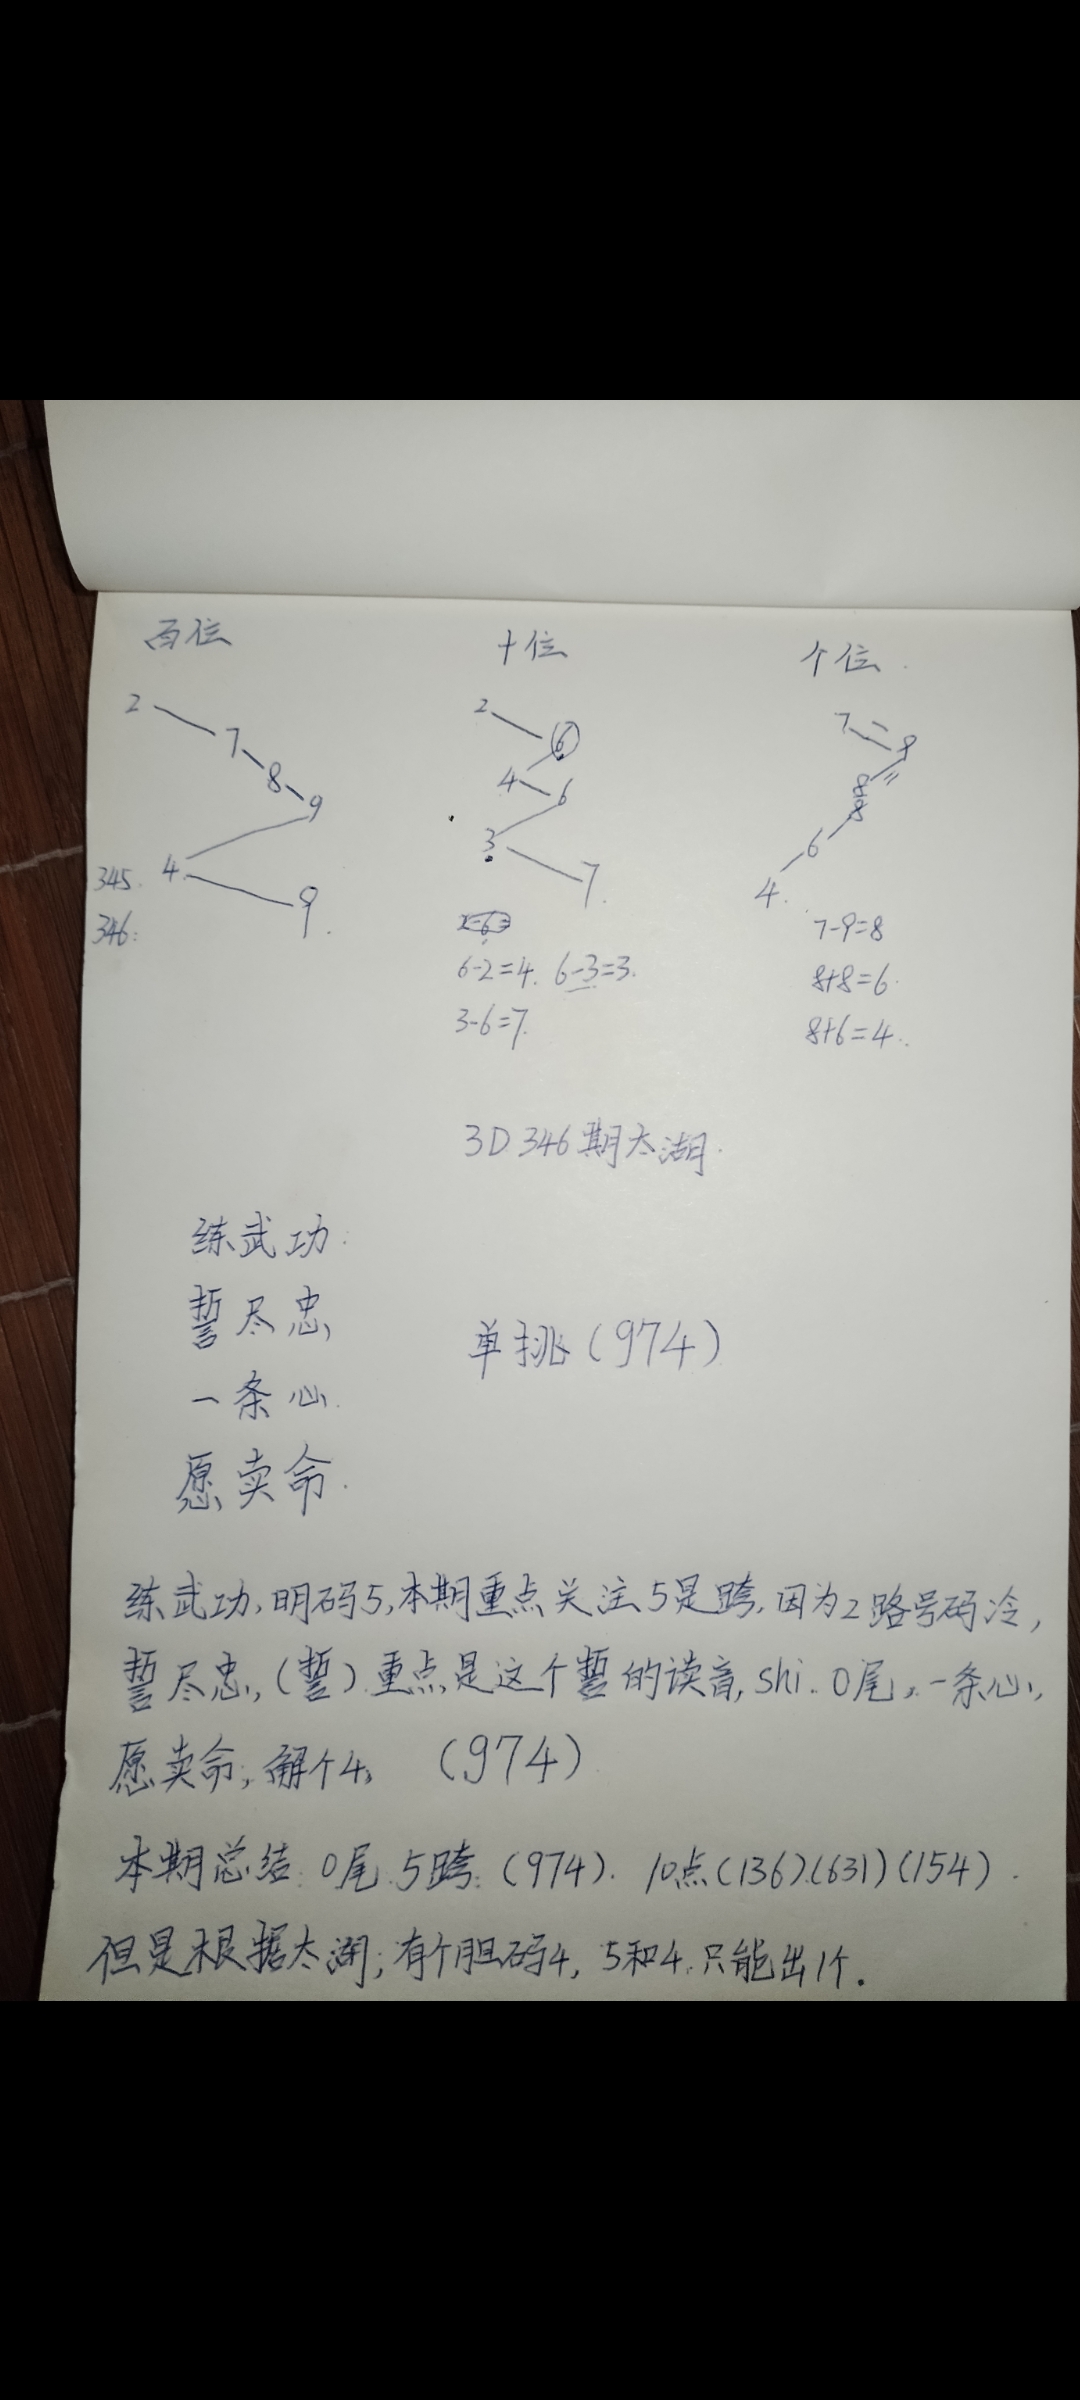 百位 十位 个位
2 2 7=9
7 6 8+8
8 4 6 6
9 3 4
345. 4 7
346: 9
6-2=4. 6-3=3. 7-9=8
3-6=7. 8+8=6
8+6=4.
3D 346期太湖
练武功
誓尽忠,
单挑(974)
一条心
愿卖命.
练武功,明码5,本期重点关注5是跨,因为2路号码冷,
誓尽忠,(誓)重点是这个誓的读音,shi.0尾,一条心,
愿卖命,解个4, (974)
本期总结:0尾.5跨:(974).10点(136)(631)(154).
但是根据太湖;有个胆码4,5和4.只能出1个.